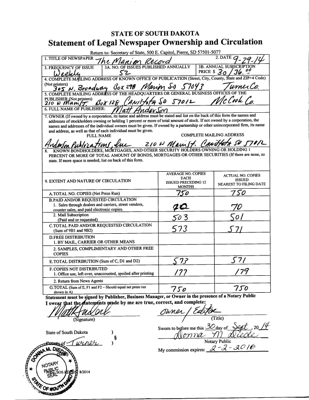 STATE OF SOUTH DAKOTA
Statement of Legal Newspaper Ownership and Circulation
Return to: Secretary of State, 500 E. Capitol, Pierre, SD 57501-5077
1. TITLE OF NEWSPAPER The Marion Record 2. DATE 9-29-14
3. FREQUENCY OF ISSUE Weekly
3A. NO. OF ISSUES PUBLISHED ANNUALLY 52
3B. ANNUAL SUBSCRIPTION PRICE $ 30/36
4. COMPLETE MAILING ADDRESS OF KNOWN OFFICE OF PUBLICATION (Street, City, County, State and ZIP+4 Code)
(Not printers) 305 N. Broadway Box 298 Marion SD 57043 Turner Co.
5. COMPLETE MAILING ADDRESS OF THE HEADQUARTERS OR GENERAL BUSINESS OFFICES OF THE
PUBLISHER
210 W Main St Box 128 Canistota SD 57012 McCook Co.
6. FULL NAME OF PUBLISHER: Matt Anderson
7. OWNER (If owned by a corporation, its name and address must be stated and list on the back of this form the names and
addresses of stockholders owning or holding 1 percent or more of total amount of stock. If not owned by a corporation, the
names and addresses of the individual owners must be given. If owned by a partnership or other unincorporated firm, its name
and address, as well as that of each individual must be given.
FULL NAME COMPLETE MAILING ADDRESS
Anderson Publications, Inc 210 W Main St. Canistota SD 57012
8. KNOWN BONDHOLDERS, MORTGAGES, AND OTHER SECURITY HOLDERS OWNING OR HOLDING 1
PERCENT OR MORE OF TOTAL AMOUNT OF BONDS, MORTGAGES OR OTHER SECURITIES (If there are none, so
state. If more space is needed, list on back of this form.
9. EXTENT AND NATURE OF CIRCULATION
AVERAGE NO. COPIES EACH ISSUED PRECEDING 12 MONTHS
ACTUAL NO. COPIES ISSUED NEAREST TO FILING DATE
A. TOTAL NO. COPIES (Net Press Run) 750 750
B. PAID AND/OR REQUESTED CIRCULATION
1. Sales through dealers and carriers, street vendors,
counter sales, and paid electronic copies. 70 70
2. Mail Subscription
(Paid and/or requested) 503 501
C. TOTAL PAID AND/OR REQUESTED CIRCULATION
(Sum of 9B1 and 9B2) 573 571
D. FREE DISTRIBUTION
1. BY MAIL, CARRIER OR OTHER MEANS
2. SAMPLES, COMPLIMENTARY AND OTHER FREE
COPIES
E. TOTAL DISTRIBUTION (Sum of C, D1 and D2) 573 571
F. COPIES NOT DISTRIBUTED
1. Office use, left over, unaccounted, spoiled after printing 177 179
2. Return from News Agents
G. TOTAL (Sum of E, F1 and F2 - Should equal net press run
shown in A) 750 750
Statement must be signed by Publisher, Business Manager, or Owner in the presence of a Notary Public
I swear that the statements made by me are true, correct, and complete:
Owner / Editor
(Signature) (Title)
State of South Dakota )
Sworn to before me this 30 day of Sept, 2014
Turner )
Notary Public
My commission expires: 2-2-2016
NOTARY PUBLIC
SOUTH DAKOTA